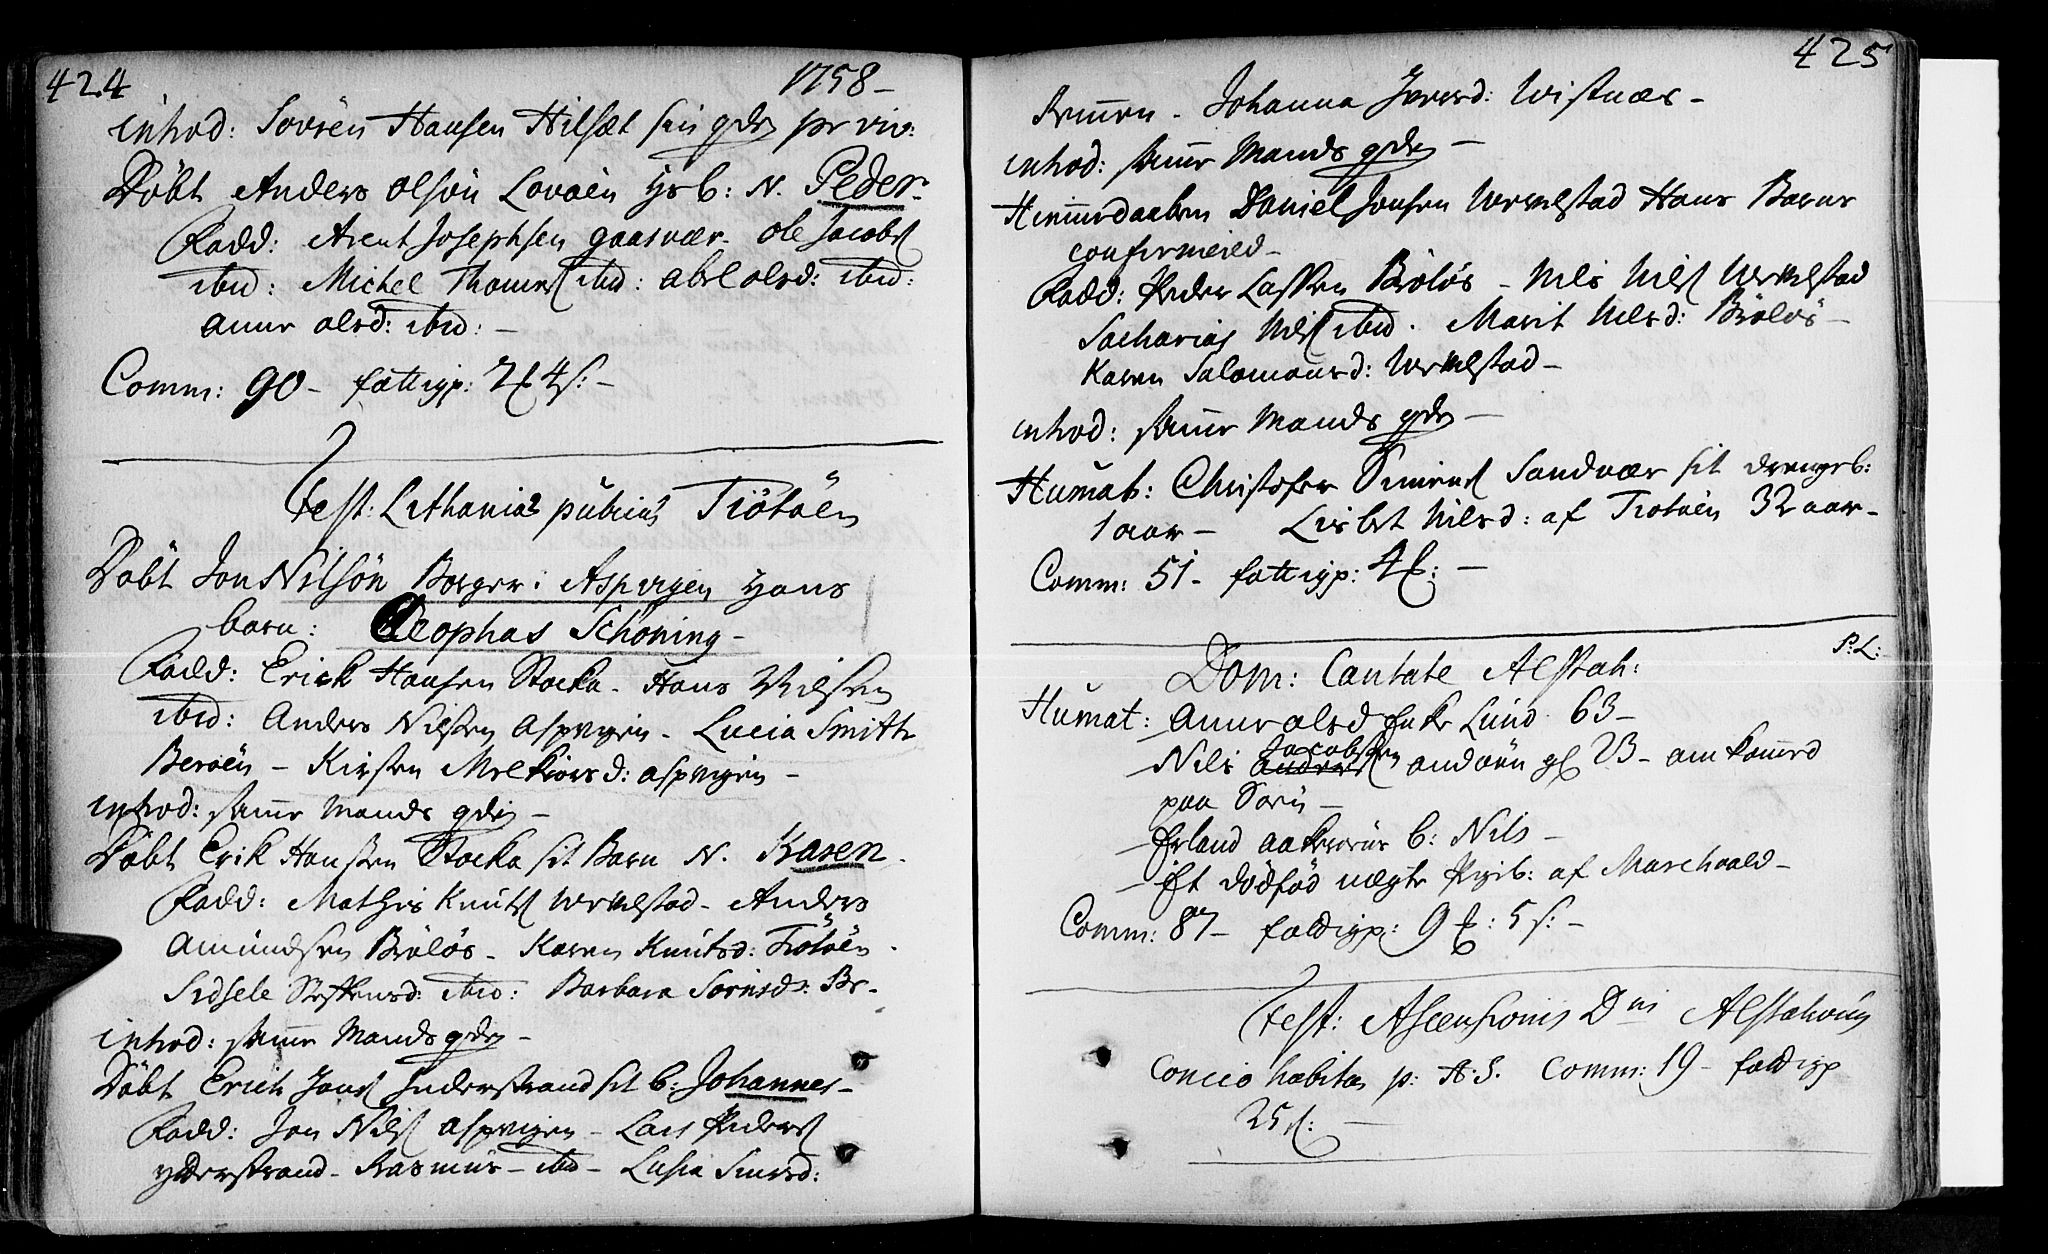 424
1758-
inhrod: Sovren Hansen Hilsæt sin qde pr viv:
Döbt Anders olsön Lovöen hs b: N. Peder.
Fadd: Arent Josephsen gaasvær. ole Jacobs
ibid: Michel Thomes ibid: abel olsd: ibid:
anne olsd: ibid: -
Comm: 90 - fattigp: 4 s: -
Fest: Lithania publica Tiötöen
Döbt Jon Nilsön Borger i Aspvigen hans
barn: Cleophas Schöning -
Fadd: Erick Hansen Stocka - Hans Nilsen
ibid: Anders Nilsen Aspvigen - Lucia Smith
Beröen - Kirsten Melkiorsd: aspvigen -
inhrod: samme Mands qde -
Döbt Erik Hansen Stocka sit Barn N. Karen.
Fadd: Mathis Knuts Urvelstad - Anders
Amundsen Brölös - Karen Knutsd: Tiötöen -
Sidsele Steffensd: ibid: Barbara Sörensd: Br-
inhrod: samme Mands qde -
Döbt Erich Jans Inderstrand sit b: Johannes -
Fadd: Jon Nils aspvigen - Lars Peders
yderstrand - Rasmus - ibid - Lusia Simesd:
425
Johanna Iversd: Wistnæs -
inhrod: samme Mands qde -
Hiemmedaaben Daniel Jonsen Urvelstad Hans Barns
confirmered -
Fadd: Peder Lassen Brölös - Nils Nils Urvelstad
Sacharias Nils ibid. Marit Nilsd: Brölös -
Karen Salamonsd: Urvelstad -
inhrod: samme Mands qde -
Humat: Christofer Simens Sandvær sit drengeb:
1 aar - Lisbet Nilsd: af Tiotöen 32 aar -
Comm: 51 - fattigp: 4 -
S: L:
Dom: Cantate Alstah:
Humat: Anne olsd Enke Lund 63 -
Nils Jacobsen andöen gl 23 - omkommed
paa Söen -
Erland aakervig b: Nils -
Et dödföd uægte Pigeb: af Marchvald -
Comm: 87 - fattigp: 9 : 5 s: -
Fest: Ascensionis Dni Alstahoug
Concio habita p: A: S. Comm: 19 - fattigp
25 s: -